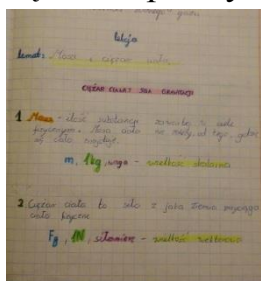 lekcja
temat: Masa i ciężar ciała
CIĘŻAR CIAŁA = SIŁA GRAWITACJI
1 Masa - ilość substancji zawarta w ciele
fizycznym. Masa ciała nie zależy od tego, gdzie
to ciało znajduje
m, 1kg, waga - wielkość skalarna
2 Ciężar ciała to siła z jaką Ziemia przyciąga
ciało fizyczne
Fg, 1N, siłomierz - wielkość wektorowa